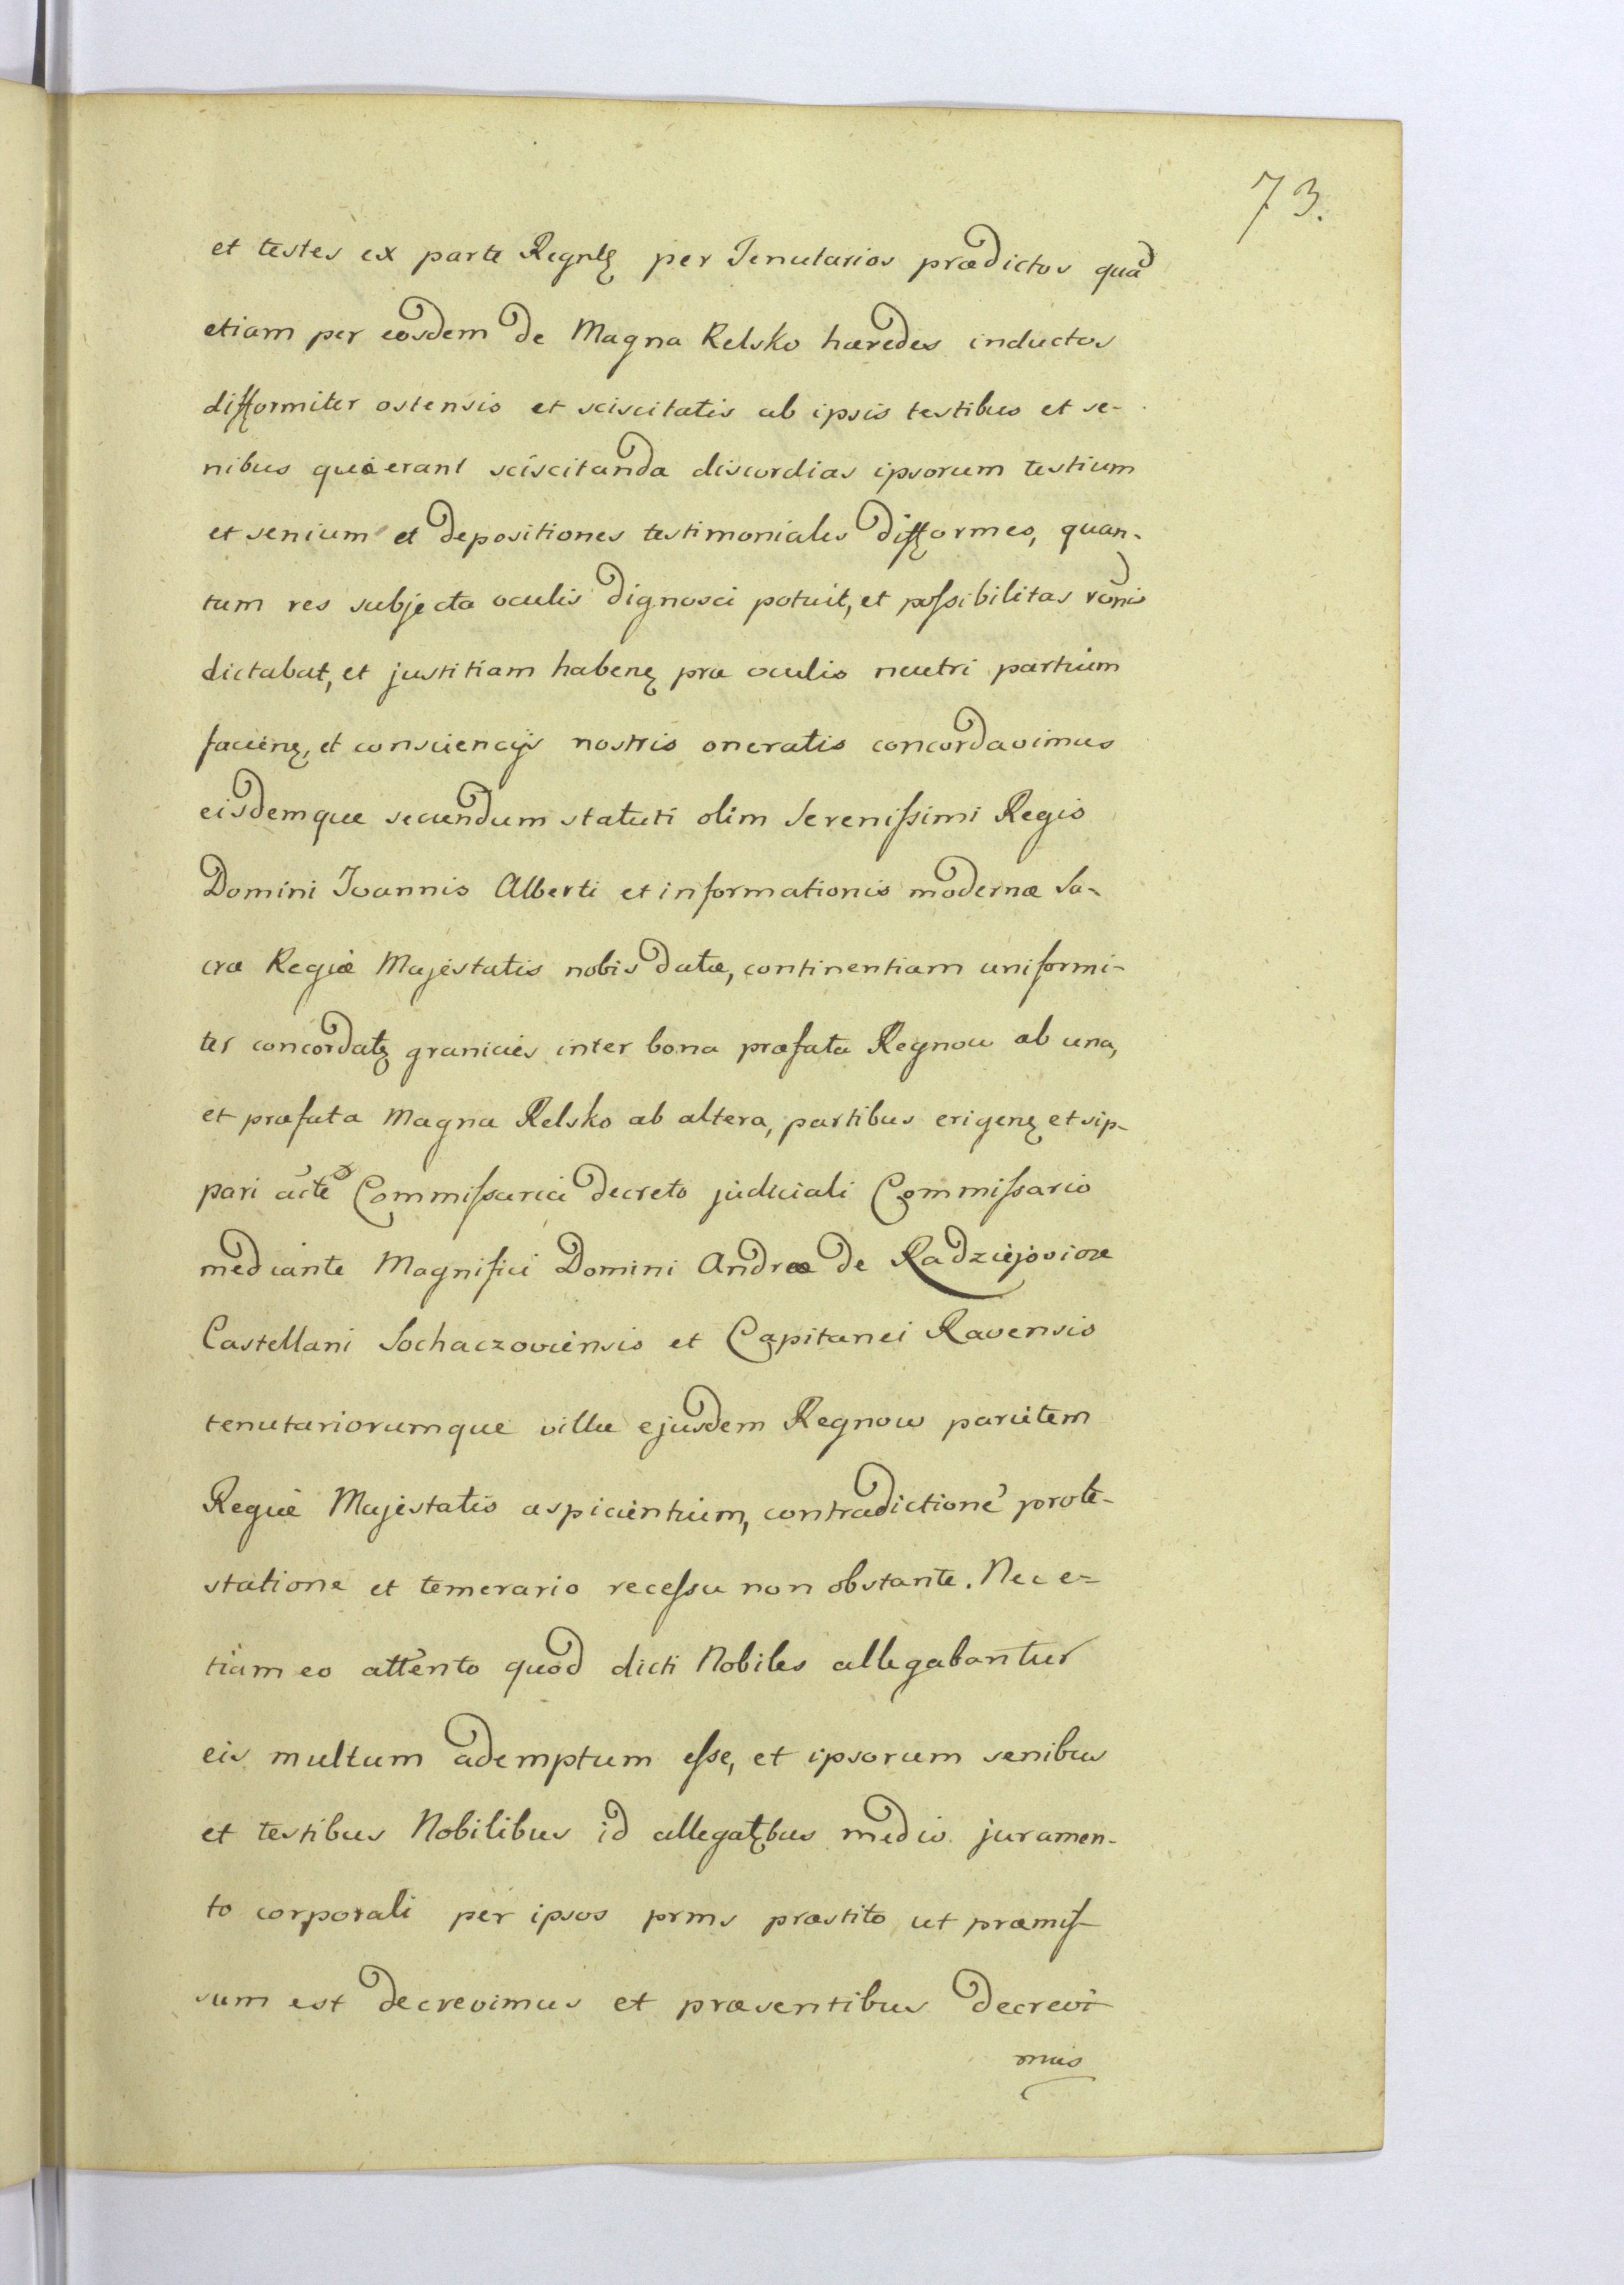 73.
et testes ex parte Regnlę per Tenutarios prædictos quã
etiam per eosdem de Magna Relsko hæredes inductos
difformiter ostensis et sciscitatis ab ipsis testibus et se-
nibus quæ erant sciscitanda discordias ipsorum testium
et senium et depositiones testimoniales difformes, quan-
tum res subjecta oculis dignosci potuit, et possibilitas rõnis
dictabat, et justitiam habenę præ oculis neutri partium
facienę, et consciencijs nostris oneratis concordavimus
eisdemque secundum statuti olim Serenissimi Regis
Domini Joannis Alberti et informationis modernæ Sa-
cræ Regiæ Majestatis nobis datæ, continentiam uniformi-
ter concordatę granicies inter bona præfata Regnow ab una,
et præfata Magna Relsko ab altera, partibus erigenę et sip-
pari Commissaria decreto judiciali Commissario
mediante Magnifici Domini Andreæ de Radziejovice
Castellani Sochaczoviensis et Capitanei Ravensis
tenutariorumque villæ ejusdem Regnow parcitem
Regiæ Majestatis aspicientium, contradictione prote-
statione et temerario recessu non obstante. Nec e=
tiam eo attento quod dicti Nobiles allegabantur
eis multum ademptum esse, et ipsorum senibus
et testibus Nobilibus id allegatębus medio juramen-
to corporali per ipsos prms præstito ut præmis-
sum est decrevimus et præsentibus decrevi-
mus